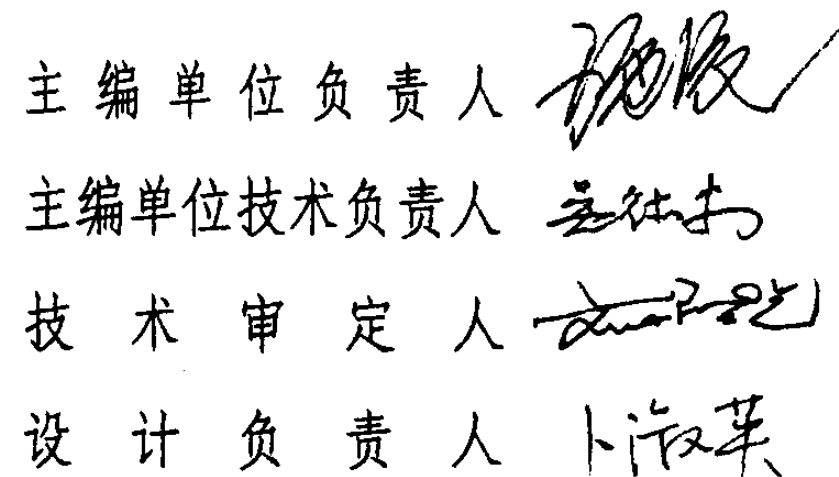 主编单位负责人
主编单位技术负责人
技术审定人
设计负责人 卜淑英